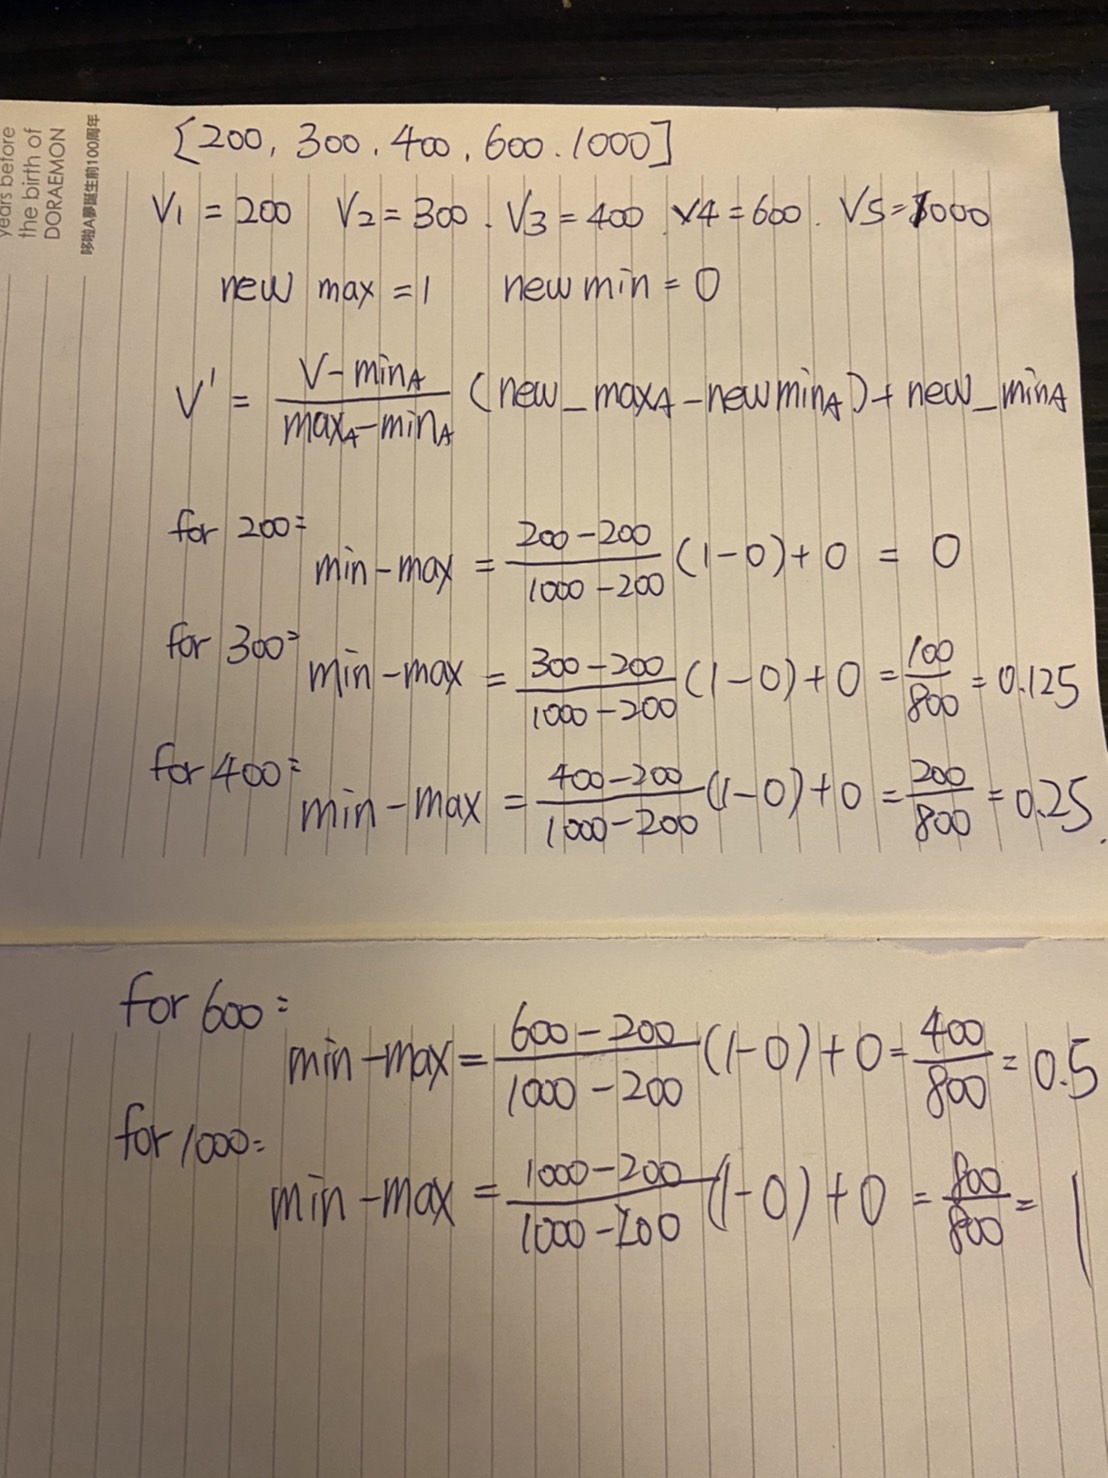 years before
the birth of
DORAEMON
哆啦A夢誕生前100周年
[200, 300, 400, 600. 1000]
V1 = 200 V2 = 300 . V3 = 400 V4 = 600 . V5 = 1000
new max = 1 new min = 0
V' = \frac{V - min_A}{max_A - min_A} (new_max_A - new min_A) + new_min_A
for 200:
min-max = \frac{200-200}{1000-200} (1-0) + 0 = 0
for 300:
min-max = \frac{300-200}{1000-200} (1-0) + 0 = \frac{100}{800} = 0.125
for 400:
min-max = \frac{400-200}{1000-200} (1-0) + 0 = \frac{200}{800} = 0.25
for 600:
min-max = \frac{600-200}{1000-200} (1-0) + 0 = \frac{400}{800} = 0.5
for 1000:
min-max = \frac{1000-200}{1000-200} (1-0) + 0 = \frac{800}{800} = 1